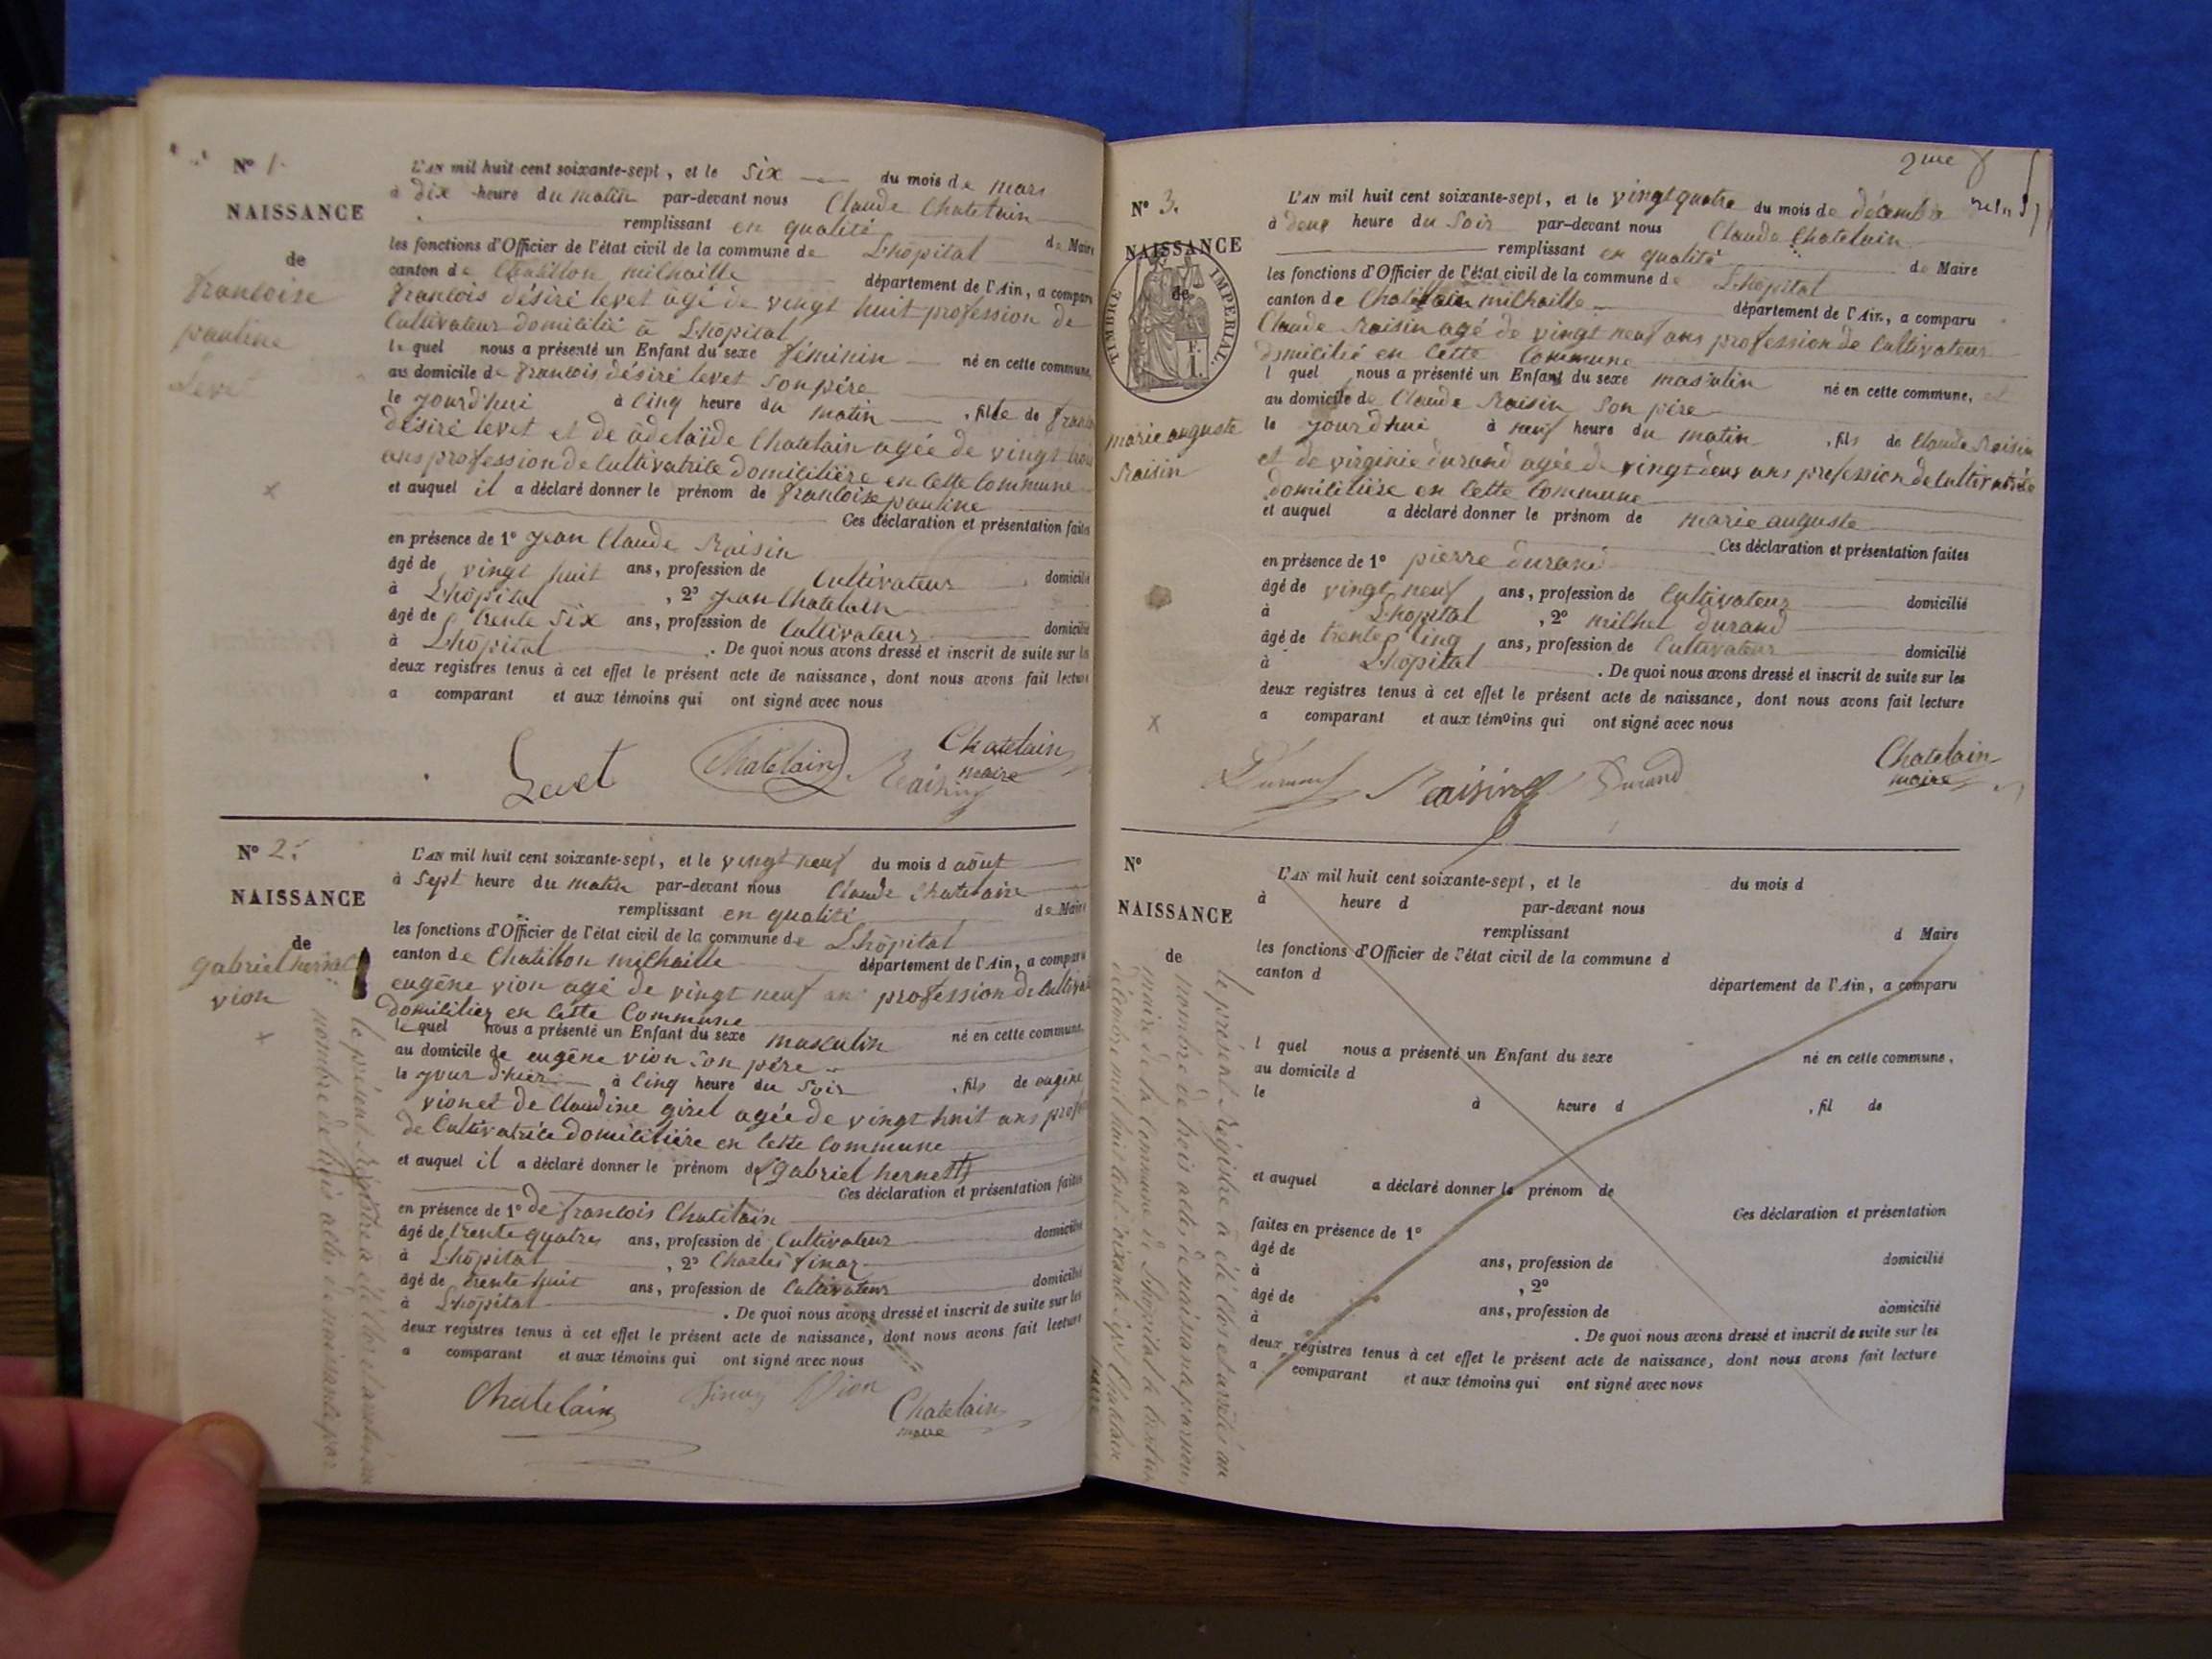 N° 1.
NAISSANCE
de
françoise
pauline
Levet
L'AN mil huit cent soixante-sept, et le six du mois de mars
à dix heure du matin par-devant nous Claude Chatelain
remplissant en qualité de Maire
les fonctions d'Officier de l'état civil de la commune de Lhôpital
canton de Chatillon milhaille département de l'Ain, a comparu
françois désiré levet âgé de vingt huit profession de
Cultivateur domicilié à Lhôpital
lequel nous a présenté un Enfant du sexe féminin né en cette commune,
au domicile de françois désiré levet son père
le jourd'hui à cinq heure du matin, fille de
désiré levet et de adelaïde Chatelain agée de vingt
ans profession de Cultivatrice domicilière en cette Commune
et auquel il a déclaré donner le prénom de françoise
pauline
Ces déclaration et présentation faites
en présence de 1° jean Claude Raisin
âgé de vingt huit ans, profession de Cultivateur domicilié
à Lhôpital, 2° jean Chatelain
âgé de trente six ans, profession de Cultivateur domicilié
à Lhôpital. De quoi nous avons dressé et inscrit de suite sur les
deux registres tenus à cet effet le présent acte de naissance, dont nous avons fait lecture
a comparant et aux témoins qui ont signé avec nous
Levet Chatelain Raisin Chatelain
maire
N° 2.
NAISSANCE
de
gabriel
vion
L'AN mil huit cent soixante-sept, et le vingt neuf du mois d août
à sept heure du matin par-devant nous Claude Chatelain
remplissant en qualité de Maire
les fonctions d'Officier de l'état civil de la commune de Lhôpital
canton de Chatillon milhaille département de l'Ain, a comparu
eugène vion agé de vingt neuf an profession de
domicilier en cette Commune
lequel nous a présenté un Enfant du sexe masculin né en cette commune,
au domicile de eugène vion son père
le jour d'hier à cinq heure du soir, fils de eugène
vion et de Claudine girel agée de vingt huit ans
de Cultivatrice domicilière en cette Commune
et auquel il a déclaré donner le prénom de gabriel hernest
Ces déclaration et présentation faites
en présence de 1° de françois Chatelain
âgé de trente quatre ans, profession de Cultivateur domicilié
à Lhôpital, 2° Charles finaz
âgé de trente huit ans, profession de Cultivateur domicilié
à Lhôpital. De quoi nous avons dressé et inscrit de suite sur les
deux registres tenus à cet effet le présent acte de naissance, dont nous avons fait lecture
a comparant et aux témoins qui ont signé avec nous
Chatelain Finaz Vion Chatelain
maire
le présent Régistre a été Clos et arreté au
nombre de trois actes de naissance par
2me
N° 3.
NAISSANCE
de
TIMBRE IMPÉRIAL
1 F.
marie auguste
Raisin
L'AN mil huit cent soixante-sept, et le vingt quatre du mois de décembre
à deux heure du soir par-devant nous Claude Chatelain
remplissant en qualité de Maire
les fonctions d'Officier de l'état civil de la commune de Lhôpital
canton de milhaille département de l'Ain, a comparu
Claude Raisin agé de vingt neuf ans profession de Cultivateur
domicilié en cette Commune
l quel nous a présenté un Enfant du sexe masculin né en cette commune,
au domicile de Claude Raisin son père
le jourd'hui à neuf heure du matin, fils de Claude Raisin
et de virginie durand agée de vingt deux ans profession de Cultivatrice
domicilière en cette Commune
et auquel a déclaré donner le prénom de marie auguste
Ces déclaration et présentation faites
en présence de 1° pierre durand
âgé de vingt neuf ans, profession de Cultivateur domicilié
à Lhopital, 2° michel durand
âgé de trente cinq ans, profession de Cultivateur domicilié
à Lhôpital. De quoi nous avons dressé et inscrit de suite sur les
deux registres tenus à cet effet le présent acte de naissance, dont nous avons fait lecture
a comparant et aux témoins qui ont signé avec nous
Durand Raisin Durand Chatelain
maire
N°
NAISSANCE
de
L'AN mil huit cent soixante-sept, et le du mois d
à heure d par-devant nous
remplissant d Maire
les fonctions d'Officier de l'état civil de la commune d
canton d département de l'Ain, a comparu
l quel nous a présenté un Enfant du sexe né en cette commune,
au domicile d
le à heure d, fil de
et auquel a déclaré donner le prénom de
Ces déclaration et présentation
faites en présence de 1°
âgé de ans, profession de domicilié
à, 2°
âgé de ans, profession de domicilié
à. De quoi nous avons dressé et inscrit de suite sur les
deux registres tenus à cet effet le présent acte de naissance, dont nous avons fait lecture
a comparant et aux témoins qui ont signé avec nous
le présent Régistre a été Clos et arretés au
nombre de trois actes de naissance par nous
maire de la Commune de Lhopital le trente
décembre mil huit cent soixante sept Chatelain
maire